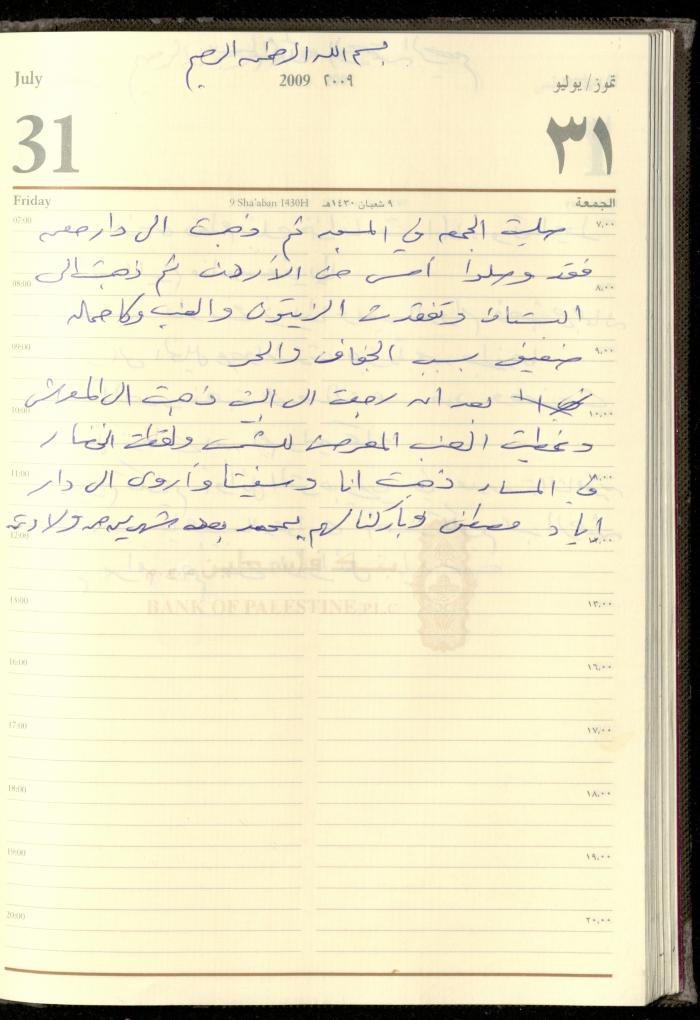 بسم الله الرحمن الرحيم
July 2009 ٢٠٠٩ تموز/يوليو
31 ٣١
Friday 9 Sha'aban 1430H ٩ شعبان ١٤٣٠هـ الجمعة
07:00 صليت الجمعه في المسجد ثم ذهبت الى دار ٧,٠٠
فقد وصلوا أمس من الأردن ثم ذهبت الى
08:00 ٨,٠٠
البستان وتفقدت الزيتون والعنب وكا حماله
09:00 ضعيف بسبب الجفاف والحر ٩,٠٠
بعد ان رجعت الى البيت ذهبت الى المعرش
10:00 ١٠,٠٠
وغطيت العنب المعرض للشمس ولقطت الخضار
11:00 في المساء ذهبت انا و وأروى الى دار
اياد مصطفى وباركنا لهم بمحمد بعد شهرين من ولادته
12:00
BANK OF PALESTINE P.L.C
13:00 ١٣,٠٠
16:00 ١٦,٠٠
17:00 ١٧,٠٠
18:00 ١٨,٠٠
19:00 ١٩,٠٠
20:00 ٢٠,٠٠